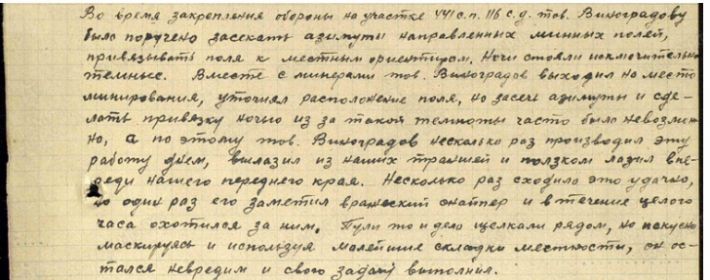 Во время закрепления обороны на участке 441 с.п. 116 с.д. тов. Виноградову
было поручено засекать азимуты направленных минных полей,
привязывать поля к местным ориентирам. Ночи стояли исключительно
темные. Вместе с минерами тов. Виноградов выходил на место
минирования, уточнял расположение поля, но засечь азимуты и сде-
лать привязку ночью из за такой темноты часто было невозмож-
но, а по этому тов. Виноградов несколько раз производил эту
работу днем, вылазил из наших траншей и ползком лазил впе-
реди нашего переднего края. Несколько раз сходило это удачно,
но один раз его заметил вражеский снайпер и в течение целого
часа охотился за ним. Пули то и дело щелкали рядом, но искусно
маскируясь и используя малейшие складки местности, он ос-
тался невредим и свою задачу выполнил.